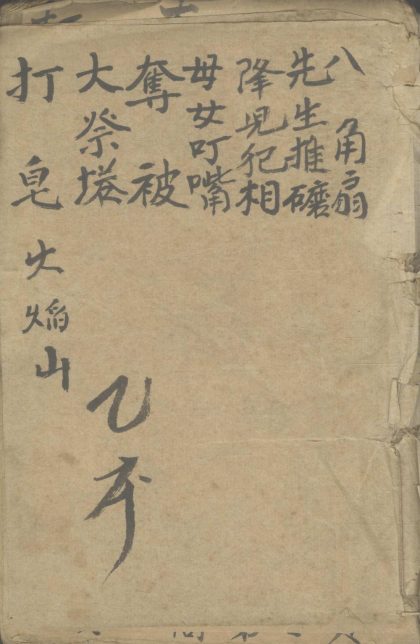 八角扇
先生推磨
降兒犯相
母女叮嘴
奪被
大祭塔
打皂
火焰山
乙本